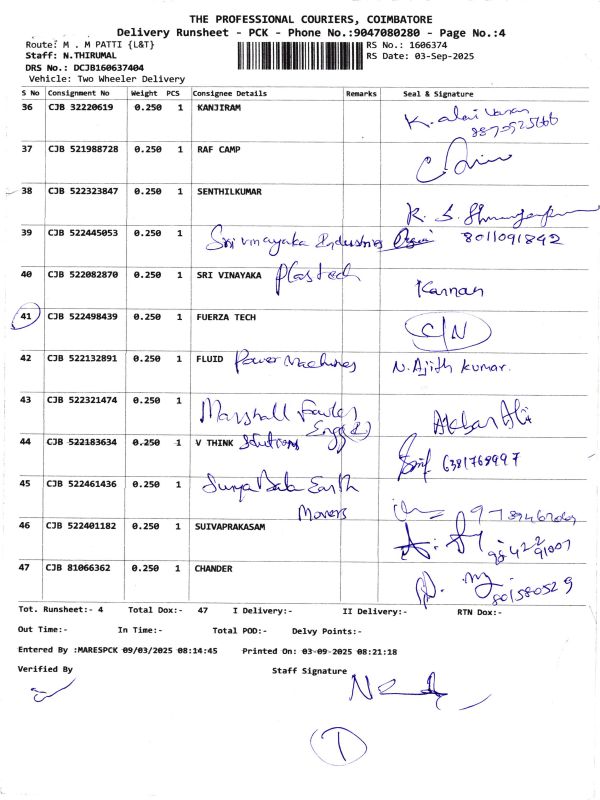 THE PROFESSIONAL COURIERS, COIMBATORE
Delivery Runsheet - PCK - Phone No.:9047080280 - Page No.:4
Route: M . M PATTI {L&T} RS No.: 1606374
Staff: N.THIRUMAL RS Date: 03-Sep-2025
DRS No.: DCJB160637404
Vehicle: Two Wheeler Delivery
S No Consignment No Weight PCS Consignee Details Remarks Seal & Signature
36 CJB 32220619 0.250 1 KANJIRAM
37 CJB 521988728 0.250 1 RAF CAMP
38 CJB 522323847 0.250 1 SENTHILKUMAR
K. S.
39 CJB 522445053 0.250 1 Sri vinayaka Industries 8011091842
40 CJB 522082870 0.250 1 SRI VINAYAKA Plastech Kannan
41 CJB 522498439 0.250 1 FUERZA TECH C/N
42 CJB 522132891 0.250 1 FLUID Power Machines N. Ajith kumar.
43 CJB 522321474 0.250 1 Marshall Engg Akbar Ali
44 CJB 522183634 0.250 1 V THINK Solutions 6381768997
45 CJB 522461436 0.250 1 Surya Bala Earth
Movers
46 CJB 522401182 0.250 1 SUIVAPRAKASAM
47 CJB 81066362 0.250 1 CHANDER
801580529
Tot. Runsheet:- 4 Total Dox:- 47 I Delivery:- II Delivery:- RTN Dox:-
Out Time:- In Time:- Total POD:- Delvy Points:-
Entered By :MARESPCK 09/03/2025 08:14:45 Printed On: 03-09-2025 08:21:18
Verified By Staff Signature